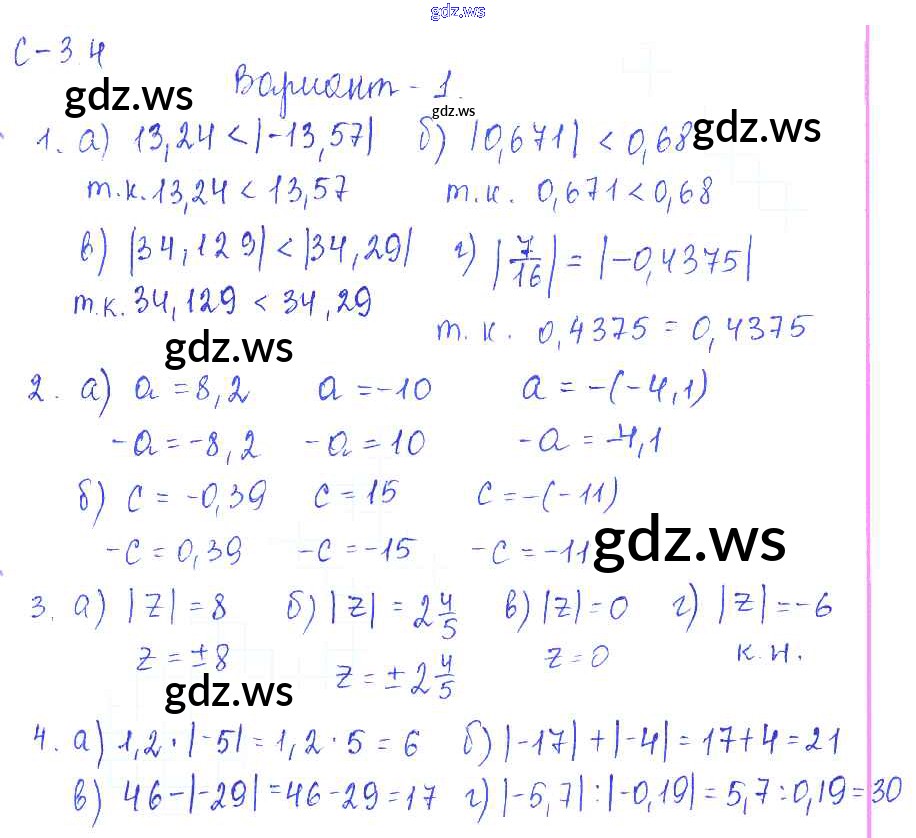 gdz.ws
С-3.4
gdz.ws
Вариант-1.
gdz.ws
gdz.ws
1. а) 13,24 < |-13,57| б) |0,671| < 0,68
т.к. 13,24 < 13,57 т.к. 0,671 < 0,68
в) |34,129| < |34,29| г) |7/16| = |-0,4375|
т.к. 34,129 < 34,29
т.к. 0,4375 = 0,4375
gdz.ws
2. а) a = 8,2 a = -10 a = -(-4,1)
-a = -8,2 -a = 10 -a = -4,1
б) c = -0,39 c = 15 c = -(-11)
-c = 0,39 -c = -15 -c = -11
gdz.ws
3. а) |z| = 8 б) |z| = 2 4/5 в) |z| = 0 г) |z| = -6
z = ±8 z = ± 2 4/5 z = 0 к.н.
gdz.ws
4. а) 1,2 · |-5| = 1,2 · 5 = 6 б) |-17| + |-4| = 17 + 4 = 21
в) 46 - |-29| = 46 - 29 = 17 г) |-5,7| : |-0,19| = 5,7 : 0,19 = 30